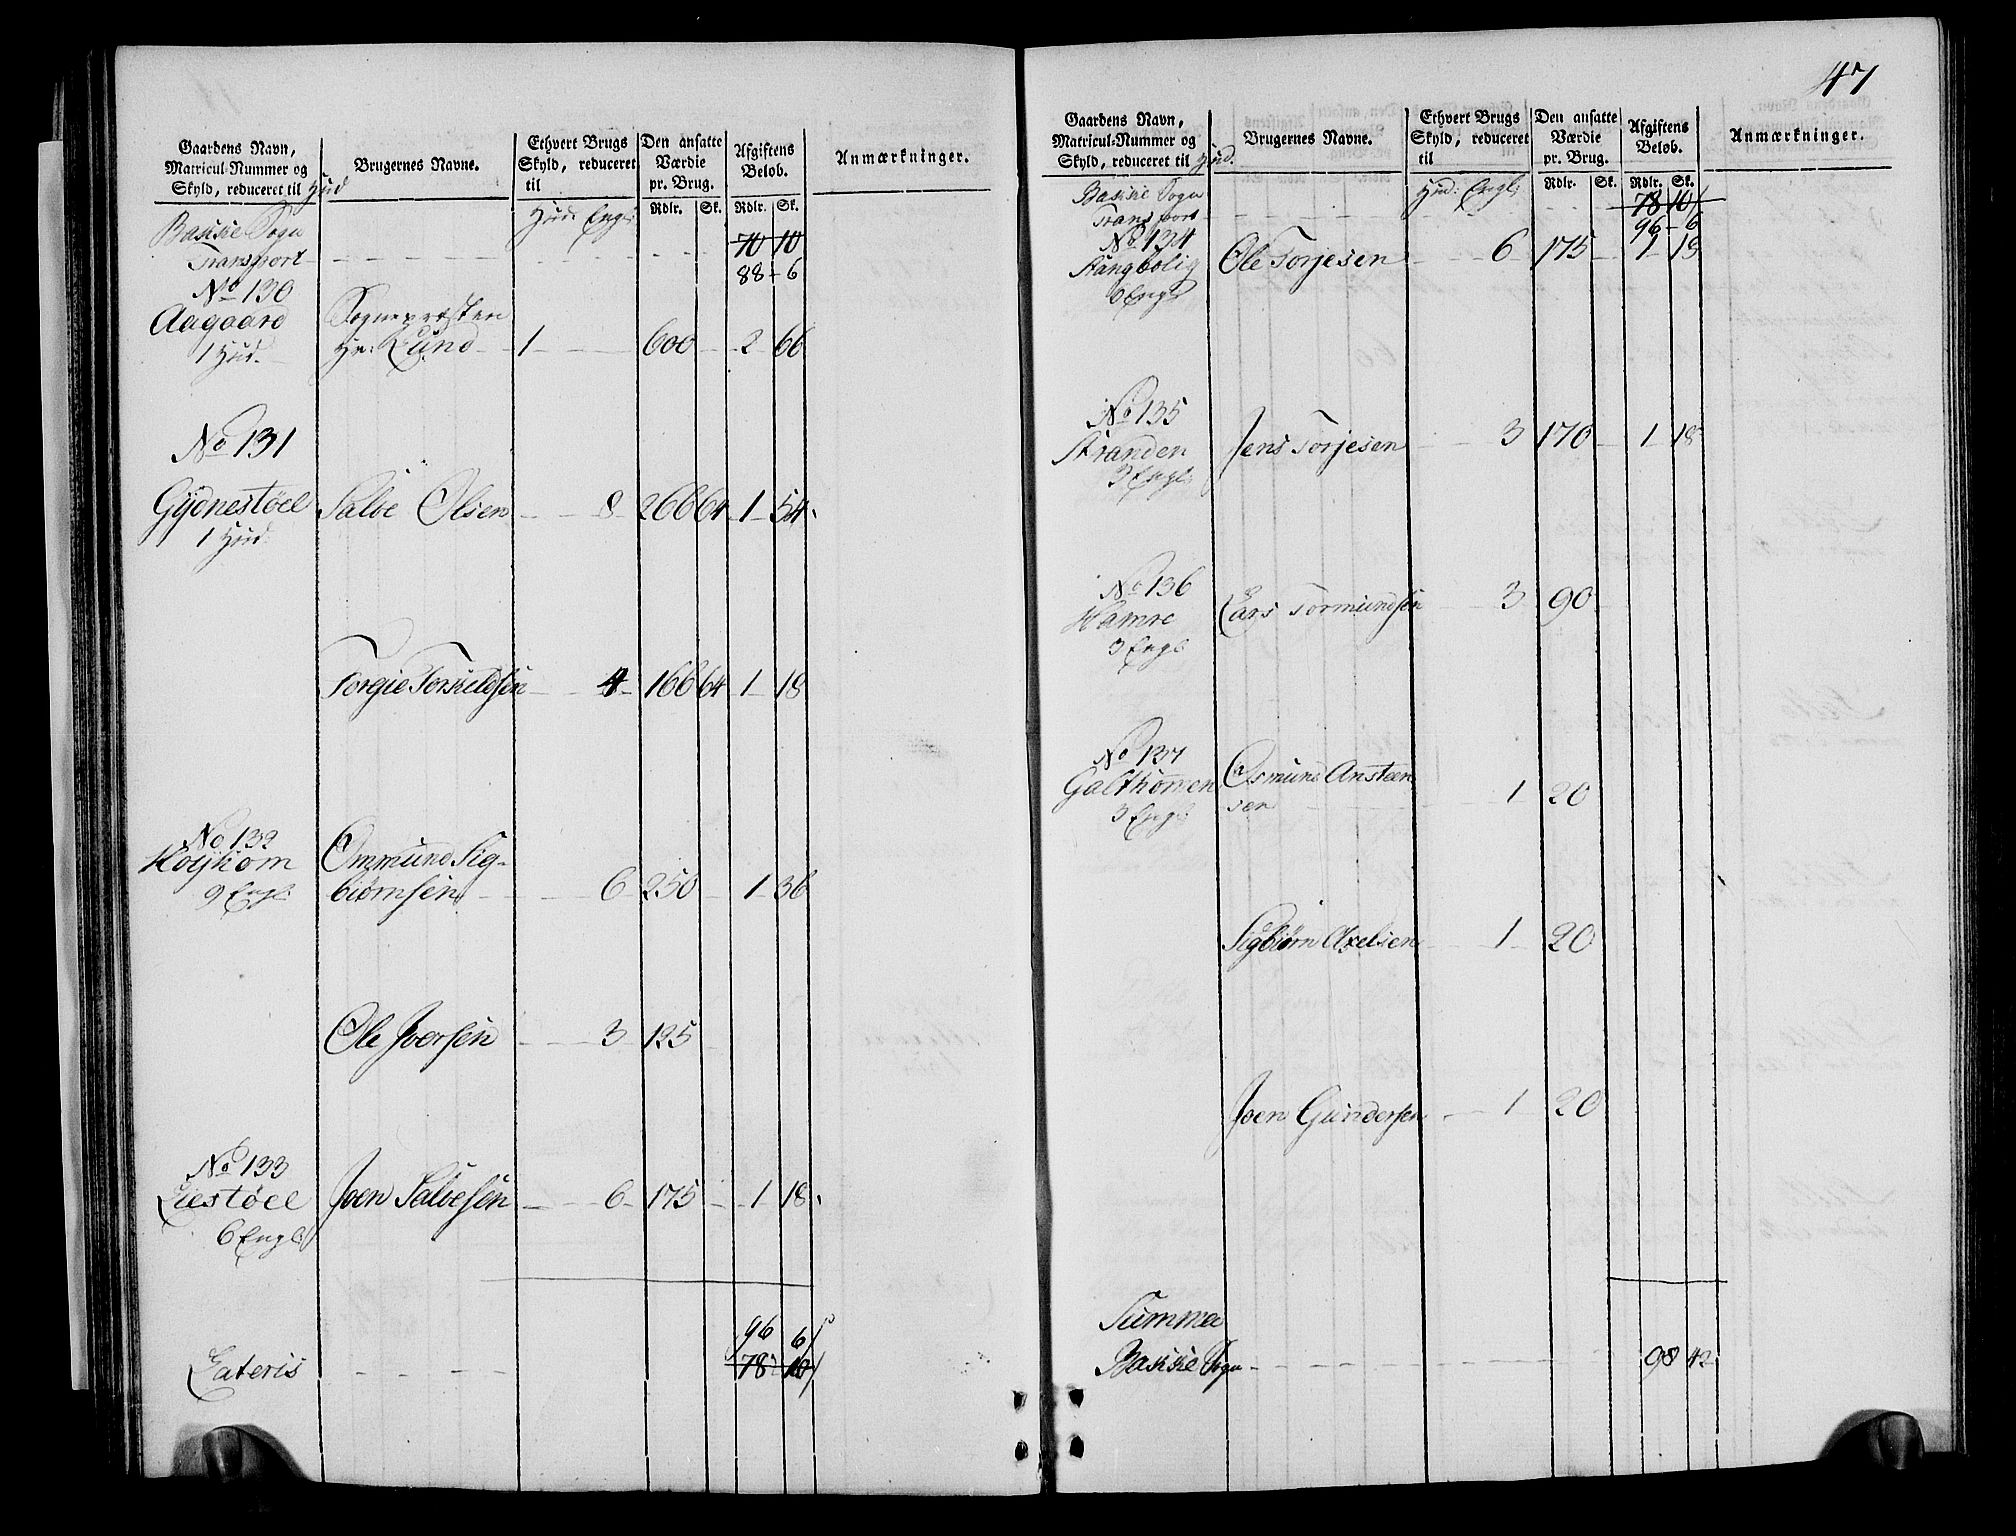 Gaardens Navn,
Matricul-Nummer og
Skyld, reduceret til Hud
Brugernes Navne.
Ethvert Brugs
Skyld, reduceret
til
Den ansatte
Værdie
pr. Brug.
Afgiftens
Beløb.
Anmærkninger.
Hud: Engl:
Rdlr. Sk. Rdlr. Sk.
Bakke Sogn
Transport 70 10
88 - 6
No 130
Aagaard Sognepræsten
1 Hud. Hr: Lund 1 600 2 66
No 131
Gydnestøel Salve Olsen 8 266 64 1 54
1 Hud
Torgie Torkeldsen 4 166 64 1 18
No 132
Høykom Ommund Sig-
9 Engl: biørnsen 6 250 1 36
Ole Iversen 3 125
No 133
Liestøel Joen Salvesen 6 175 1 18
6 Engl:
96 6
Lateris 78 10
47
Gaardens Navn,
Matricul-Nummer og
Skyld, reduceret til Hud.
Brugernes Navne.
Ethvert Brugs
Skyld, reduceret
til
Den ansatte
Værdie
pr. Brug.
Afgiftens
Beløb.
Anmærkninger.
Hud: Engl:
Rdlr. Sk. Rdlr. Sk.
Bakke Sogn
Transport 78 10
96 - 6
No 134
Stangbolig Ole Torjesen 6 175 1 18
6 Engl
No 135
Stranden Jens Torjesen 3 170 1 18
3 Engl:
No 136
Hamre Lars Tormundsen 3 90
3 Engl:
No 137
Galthommen Osmund Ansteen
3 Engl: sen 1 20
Sigbiørn Axelsen 1 20
Joen Gundersen 1 20
Summa
Bakke Sogn 98 42